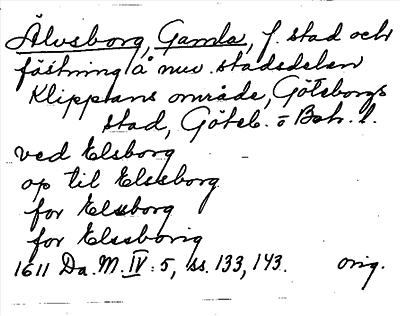 Älvsborg, Gamla, f. stad och
fästning å nuv. stadsdelen
Klippans område, Göteborgs
stad, Göteb. o Boh. l.
ved Elsborg
op til Elssborg
for Elssborg
for Elssborig
1611 Da. M. IV: 5, ss. 133, 143. orig.